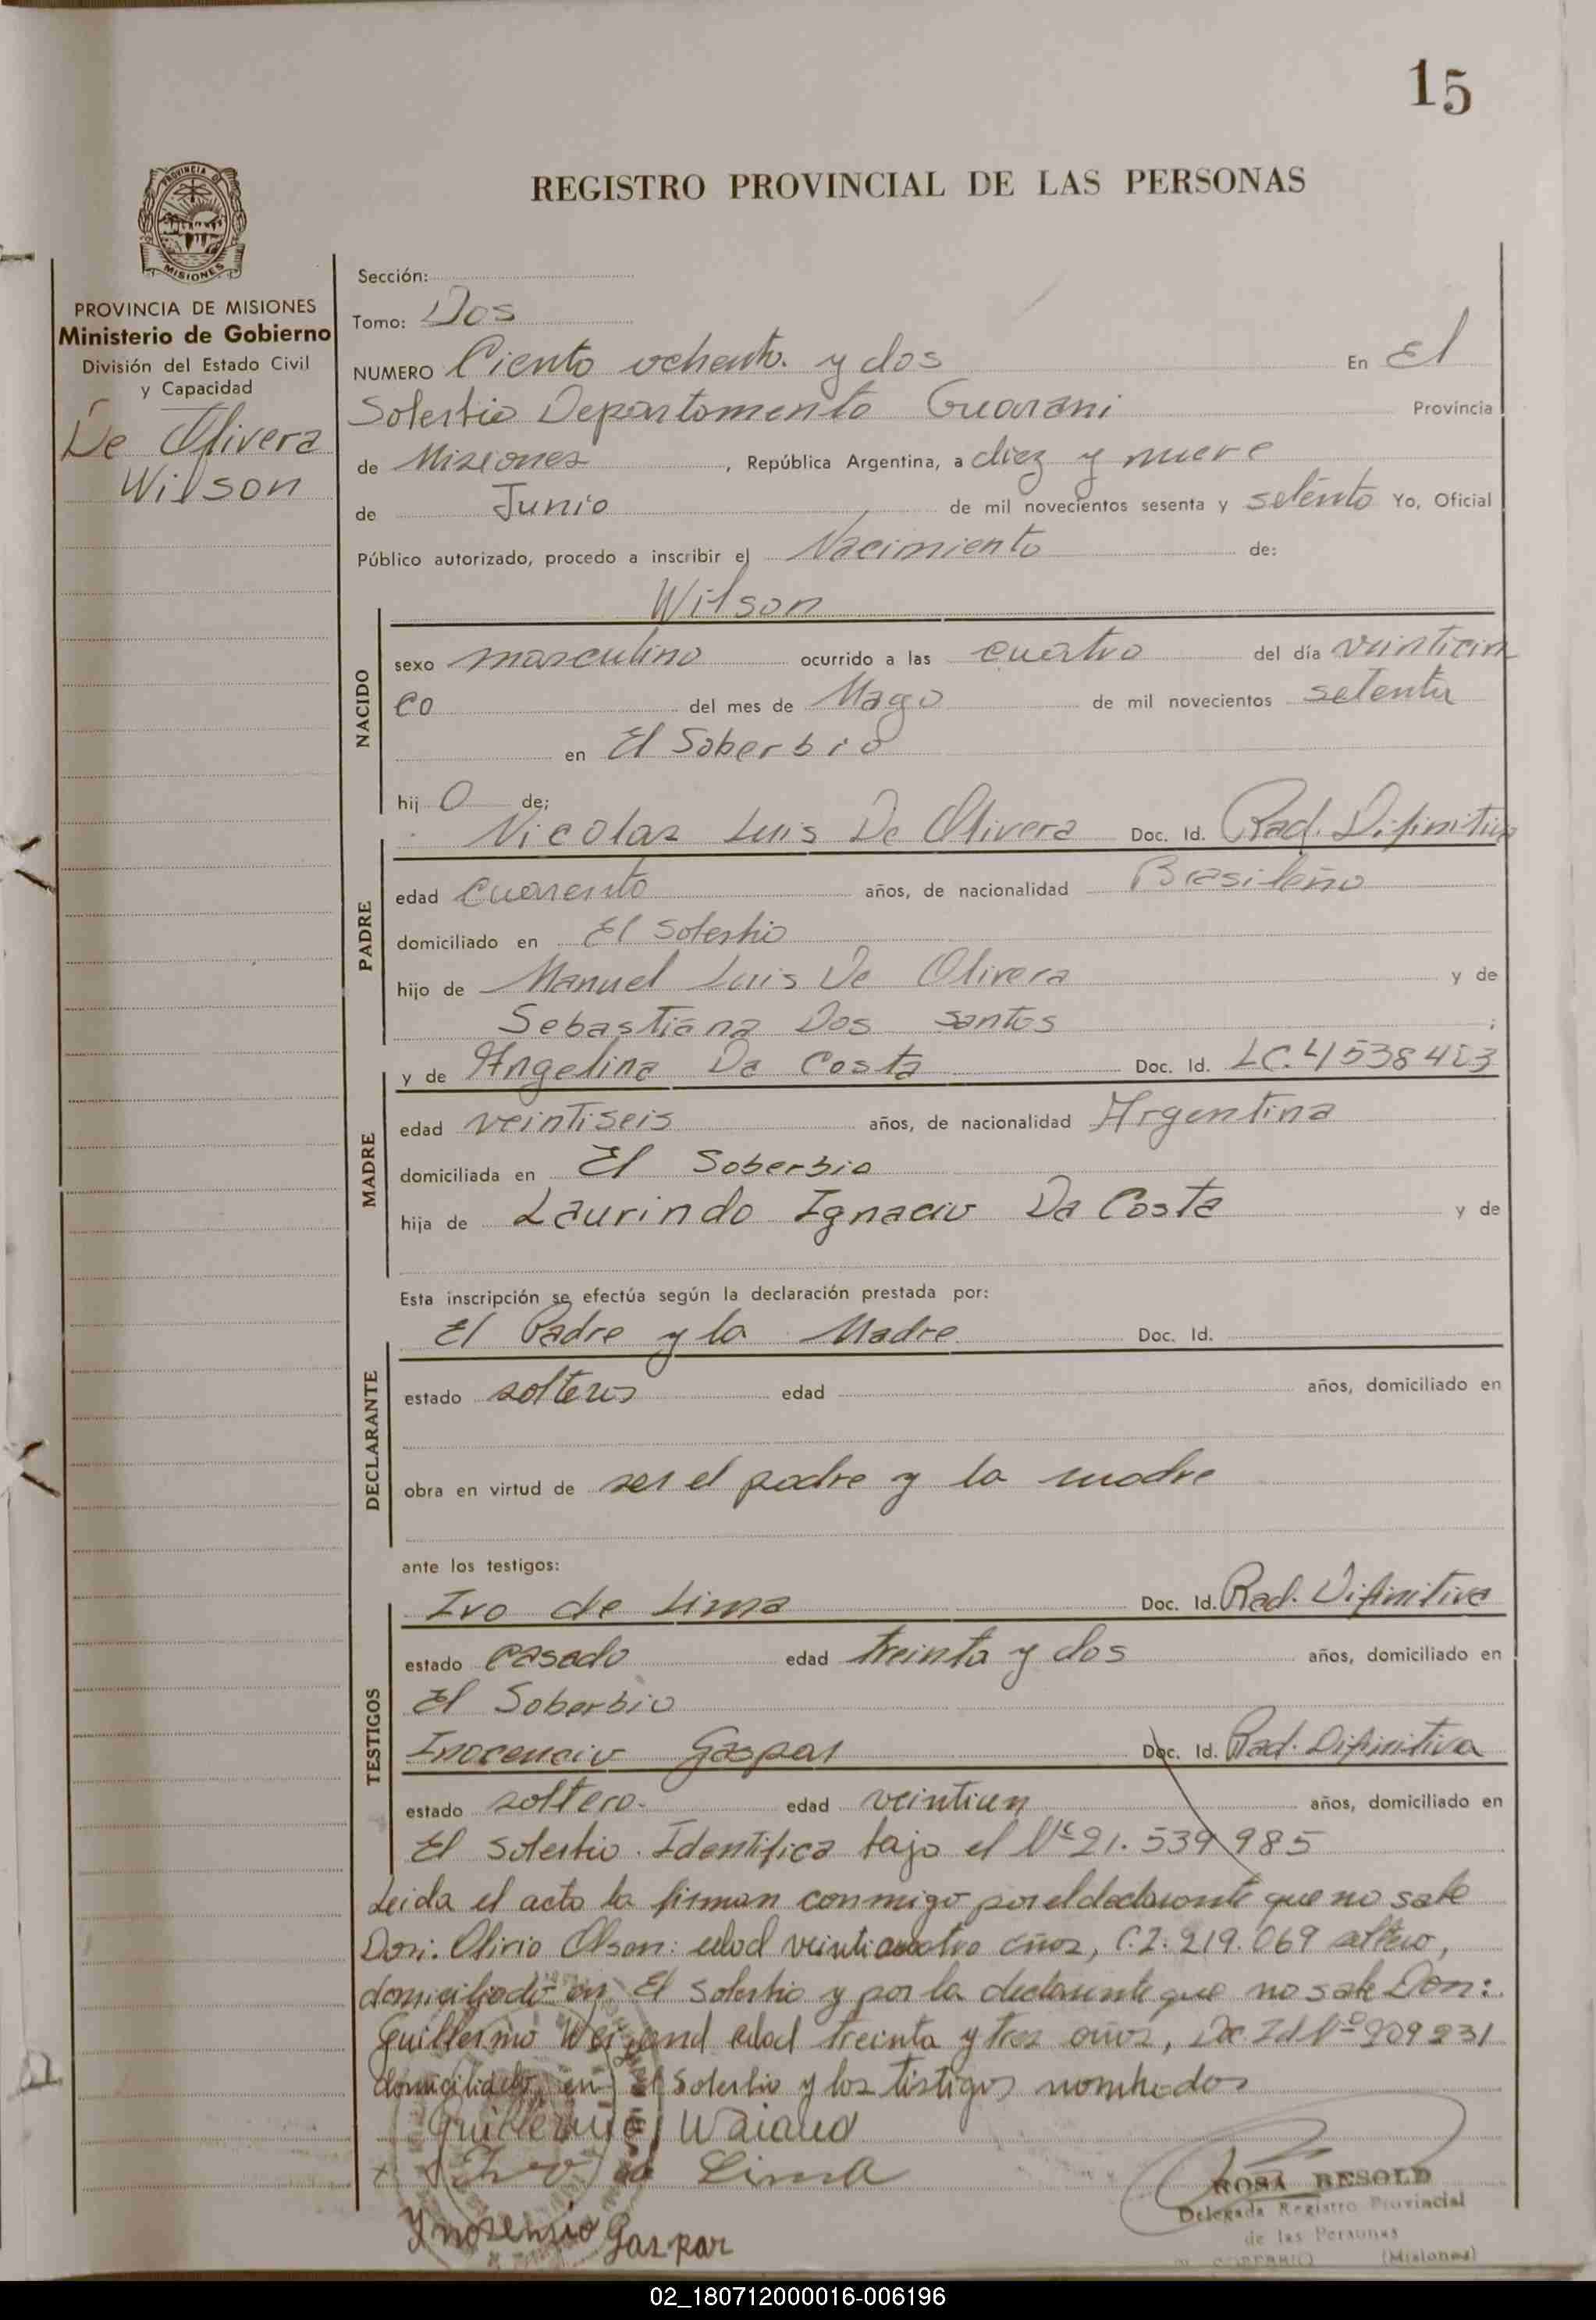 15
REGISTRO PROVINCIAL DE LAS PERSONAS
PROVINCIA DE MISIONES
MISIONES
PROVINCIA DE MISIONES
Ministerio de Gobierno
División del Estado Civil
y Capacidad
De Olivera
Wilson
Sección:
Tomo: Dos
NUMERO Ciento ochento. y dos En El
Soberbio Departamento Guarani Provincia
de Misiones, República Argentina, a diez y nueve
de Junio de mil novecientos sesenta y setento Yo, Oficial
Público autorizado, procedo a inscribir el Nacimiento de:
Wilson
NACIDO
sexo masculino ocurrido a las cuatro del día veinticin
co del mes de Mayo de mil novecientos setenta
en El Soberbio
hij o de;
Nicolas Luis De Olivera Doc. Id. Rad. Difinitiva
PADRE
edad cuarento años, de nacionalidad Brasileño
domiciliado en El Soberbio
hijo de Manuel Luis De Olivera y de
Sebastiana Dos Santos ;
y de Angelina Da Costa Doc. Id. LC.
MADRE
edad veintiseis años, de nacionalidad Argentina
domiciliada en El Soberbio
hija de Laurindo Ignacio Da Costa y de
Esta inscripción se efectúa según la declaración prestada por:
El Padre y la Madre Doc. Id.
DECLARANTE
estado solteros edad años, domiciliado en
obra en virtud de ser el padre y la madre
ante los testigos:
Ivo de Lima Doc. Id. Rad. Difinitiva
TESTIGOS
estado casado edad treinta y dos años, domiciliado en
El Soberbio
Inocencio Gaspar Doc. Id. Rad. Difinitiva
estado soltero. edad veintiun años, domiciliado en
El Soberbio. Identifica bajo el Nº 21.539.985
Leida el acta la firman conmigo por el declarante que no sabe
Don: Olirio Olsen: edad veinticuatro años, C.I. 219.069 soltero,
domiciliado en El Soberbio y por la declarante que no sabe Don:
Guillermo edad treinta y tres años, Doc Id Nº 209231
domiciliado en El Soberbio y los testigos nombrados
Guillermo Waiand
Ivo de Lima
Ynosensio Gaspar
ROSA BESOLD
Delegada Registro Provincial
de las Personas
EL SOBERBIO (Misiones)
02_180712000016-006196